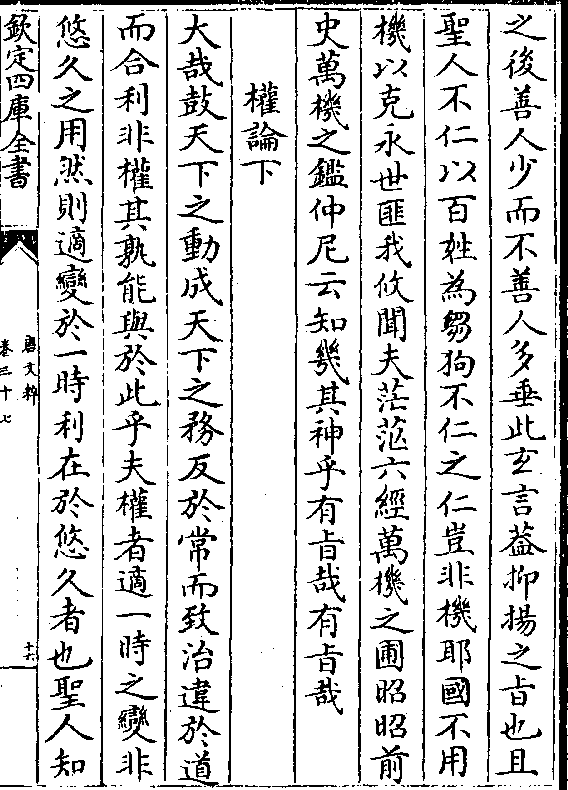 之後善人少而不善人多垂此玄言葢抑揚之㫖也且
聖人不仁以百姓為芻狗不仁之仁豈非機耶國不用
機以克永世匪我攸聞夫茫茫六經萬機之圃昭昭前
史萬機之鑑仲尼云知幾其神乎有㫖哉有㫖哉
權論下
大哉鼓天下之動成天下之務反於常而致治違於道
而合利非權其孰能與於此乎夫權者適一時之變非
悠久之用然則適變於一時利在於悠久者也聖人知
欽定四庫全書
唐文粹
卷三十七
十六